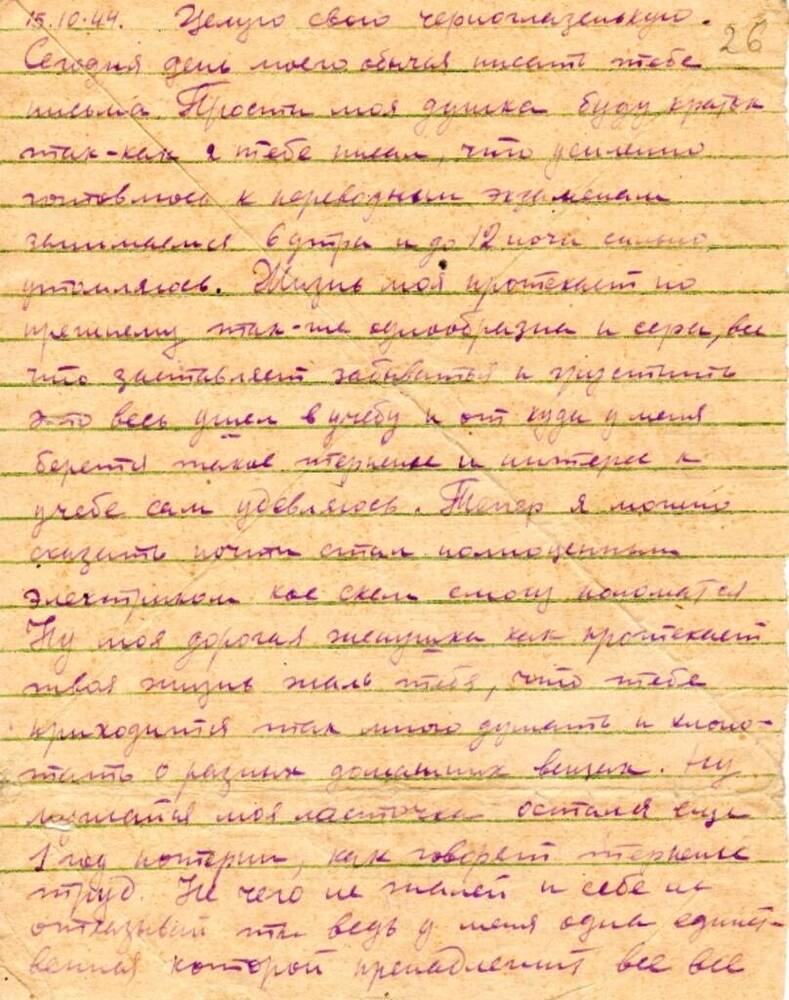 15.10.44. Целую свою черноглазенькую.
26
Сегодня день моего обычая писать тебе
письма. Прости моя душка буду краток
так-как я тебе писал, что усиленно
готовлюсь к переводным экзаменам
занимаемся 6 утра и до 12 ночи сильно
утомляюсь. Жизнь моя протекает по
прежнему так-же однообразна и сера, все
что заставляет забываться и грустить
это весь ушел в учебу и от куда у меня
берется такое терпение и интерес к
учебе сам удевляюсь. Тепер я можно
сказать почти стал полноценным
электриком кое
Ну моя дорогая женушка как протекает
твоя жизнь жаль тебя, что тебе
приходится так много думать и хлопо-
тать о разных домашних вещах. Ну
моя ласточка остался еще
1 год потерпи, как говорят терпенье
труд. Не чего не жалей и себе не
отказывай ты ведь у меня одна единст-
венная которой пренадлежит все все